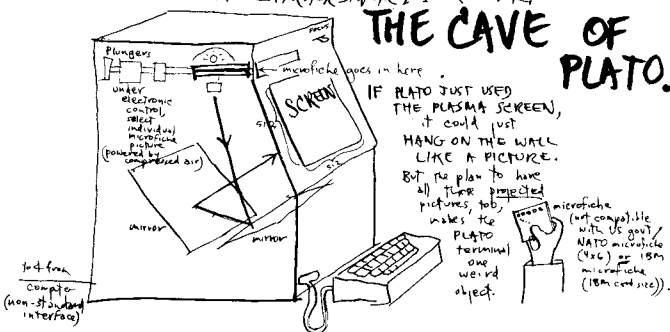 THE CAVE OF
PLATO.
FOCUS
Plungers
under
electronic
control,
select
individual
microfiche
picture
(powered by
compressed air)
microfiche goes in here.
SCREEN
512
512
mirror
mirror
to & from
computer
(non-standard
interface)
IF PLATO JUST USED
THE PLASMA SCREEN,
it could just
HANG ON THE WALL
LIKE A PICTURE.
But the plan to have
all these projected
pictures, too,
makes the
PLATO
terminal
one
weird
object.
microfiche
(not compatible
with US govt/
NATO microfiche
(4x6) or IBM
microfiche
(IBM card size)).